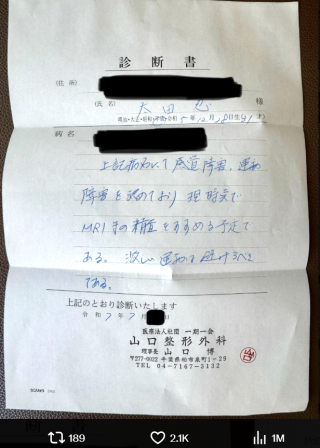 診断書
(住所)
(氏名) 太田 様
明治・大正・昭和・平成・令和 5年12月28日生
病名
上記病名にて感覚障害、運動
障害を認めており、現時点で
MRI等の精査をすすめる予定で
ある。激しい運動は避けるべき
である。
上記のとおり診断いたします
令和7年7月
医療法社団 一期一会
山口整形外科
理事長 山口 博
〒277-0022 千葉県柏市泉町1-29
TEL 04-7167-3132
189
2.1K
1M